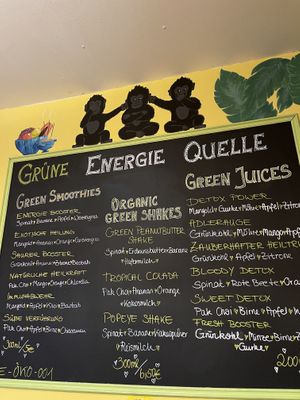 GRÜNE ENERGIE QUELLE
GREEN SMOOTHIES
ENERGIE BOOSTER
Spinat•Banane•Apfel•
EXOTISCHE HEILUNG
Mangold•Ananas•Orange•
SAURER BOOSTER
Spinat•
NATÜRLICHE HEILKRAFT
Pak Choi•Mango•Orange•
IMMUNABWEHR
Mangold•
SÜßE VERFÜHRUNG
Pak Choi•Apfel•Birne•
300ml/5€
E-ÖKO-001
ORGANIC
GREEN SHAKES
GREEN PEANUTBUTTER
SHAKE
Spinat•Erdnussbutter•Banane
•Hafermilch
TROPICAL COLADA
Pak Choi•Ananas•Orange
•Kokosmilch
POPEYE SHAKE
Spinat•Banane•Kakaopulver
•Reismilch
300ml/
GREEN JUICES
DETOX POWER
Mangold•Gurke•Möhre•Apfel•Zitrone
ADLERAUGE
Grünkohl•Möhre•Mango•Apfel
ZAUBERHAFTER HEILTR
Grünkohl•Apfel•Zitrone
BLOODY DETOX
Spinat•Rote Beete•Orange
SWEET DETOX
Pak Choi•Birne•Apfel•
FRESH BOOSTER
Grünkohl•Minze•Birne•
Gurke
200